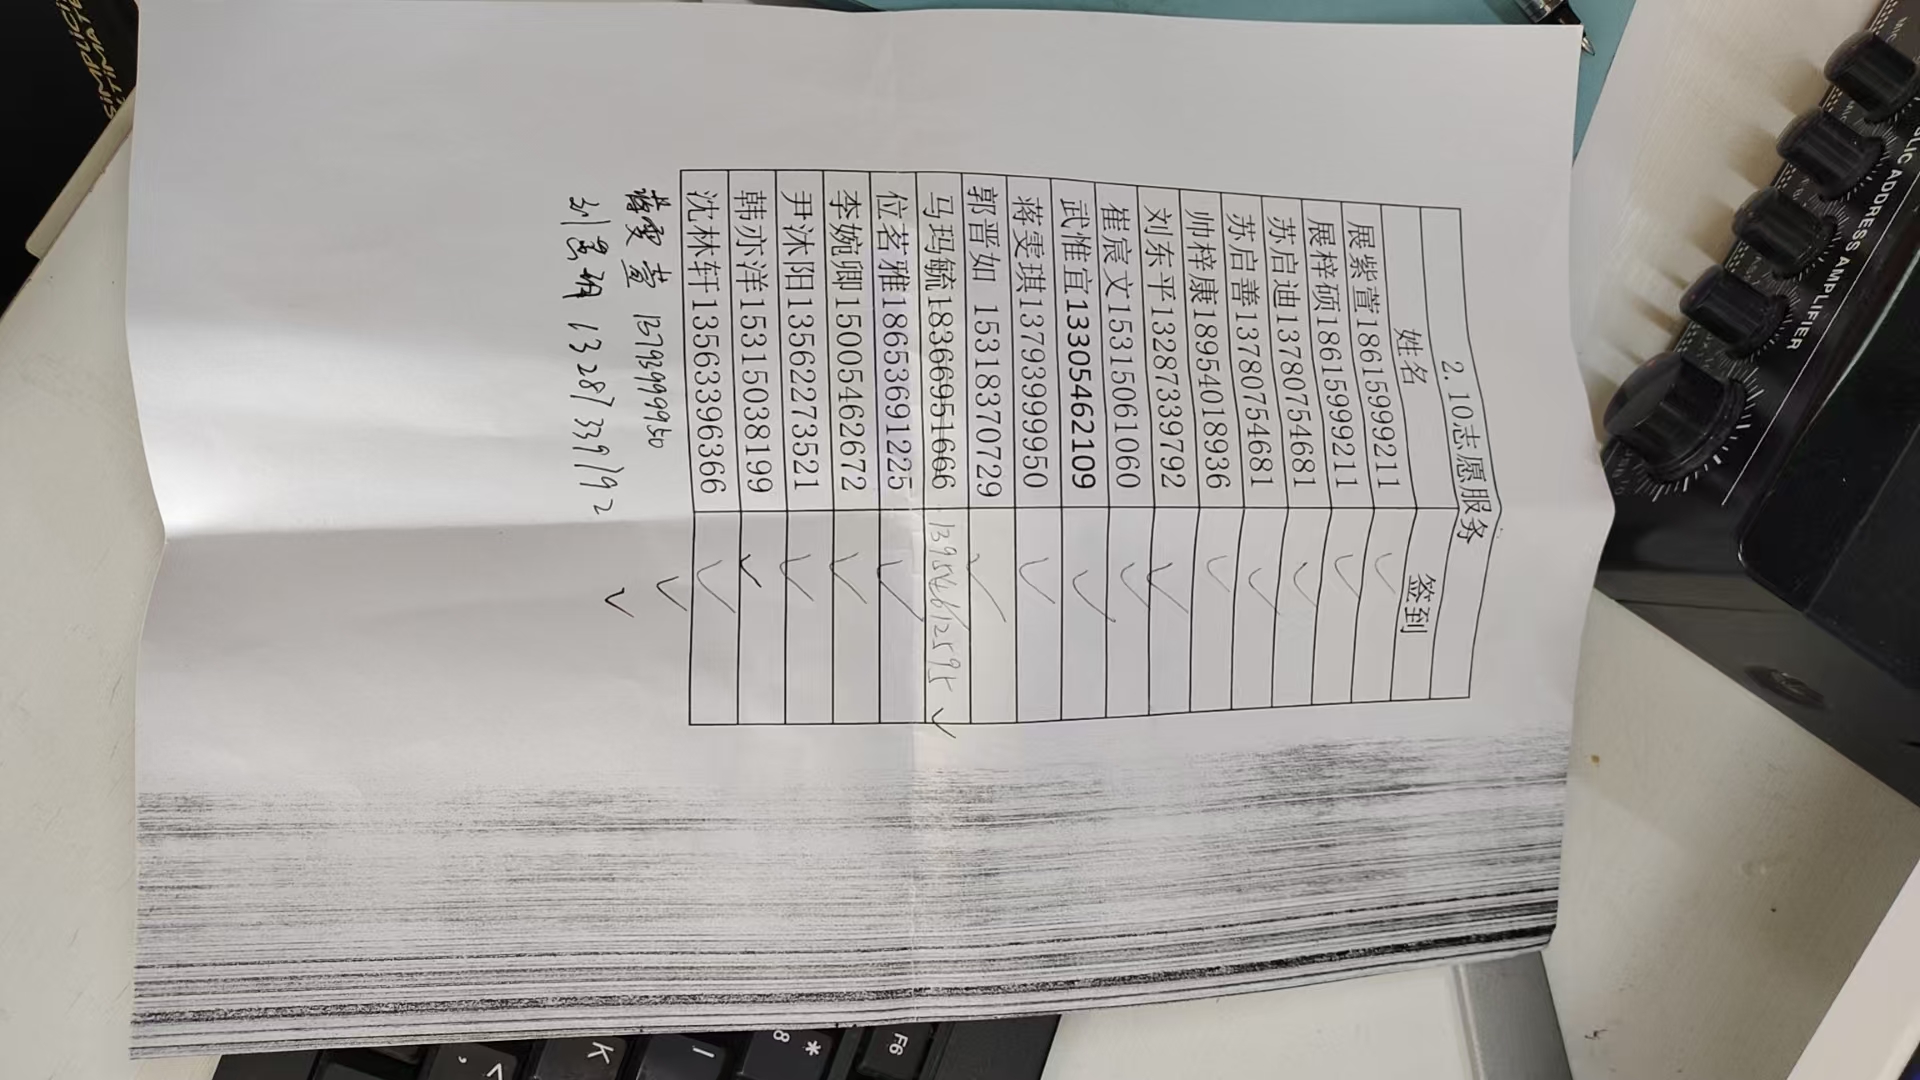 2.10志愿服务
姓名 签到
展紫萱18615999211 ✓
展梓硕18615999211 ✓
苏启迪13780754681 ✓
苏启善13780754681 ✓
帅梓康18954018936 ✓
刘东平13287339792 ✓
崔宸文15315061060 ✓
武惟宜13305462109 ✓
蒋雯琪13793999950 ✓
郭晋如 15318370729 ✓
马玛毓18366951666 13954612595 ✓
位茗雅18653691225 ✓
李婉卿15005462672 ✓
尹沐阳13562273521 ✓
韩亦洋15315038199 ✓
沈林轩13563396366 ✓
蒋雯萱 13793999950 ✓
刘 13287339792 ✓
PUBLIC ADDRESS AMPLIFIER
F6
* 8
K